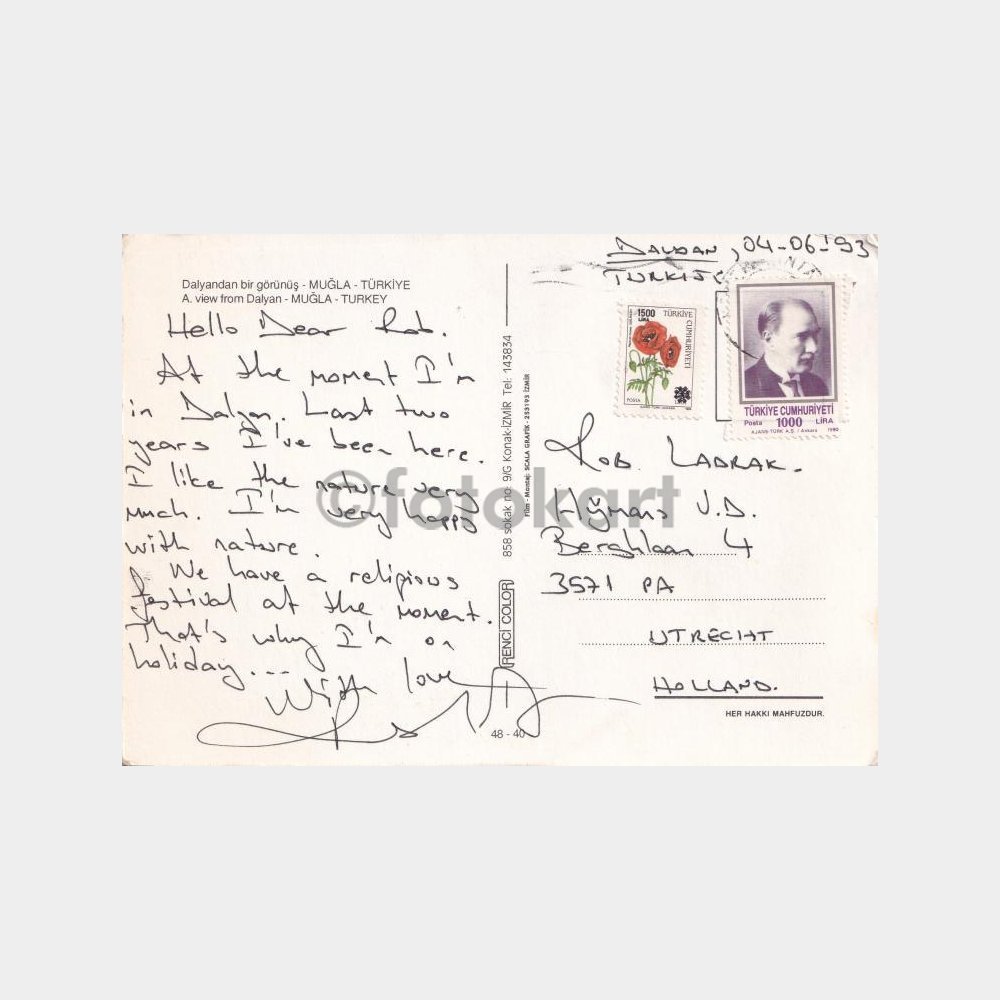 DALYAN, 04-06-I93
TURKIJE
Dalyandan bir görünüş - MUĞLA - TÜRKİYE
A. view from Dalyan - MUĞLA - TURKEY
Hello Dear Rob.
At the moment I'm
in Dalyan. Last two
years I've been here.
I like the nature very
much. I'm very happy
with nature.
We have a religious
festival at the moment.
That's why I'm on
holiday....
With love
858 sokak no: 9/G Konak-İZMİR Tel: 143834
Film - Montaj: SCALA GRAFİK - 253193 İZMİR
RENCİ COLOR
48 - 40
1500
LİRA
TÜRKİYE
CUMHURİYETİ
POSTA
TÜRKİYE CUMHURİYETİ
Posta 1000 LİRA
AJANS-TÜRK A.Ş. / Ankara 1990
ROB LADRAK.
Hijmans V.D.
Berghlaan 4
3571 PA
UTRECHT
HOLLAND.
HER HAKKI MAHFUZDUR.
©fotokart